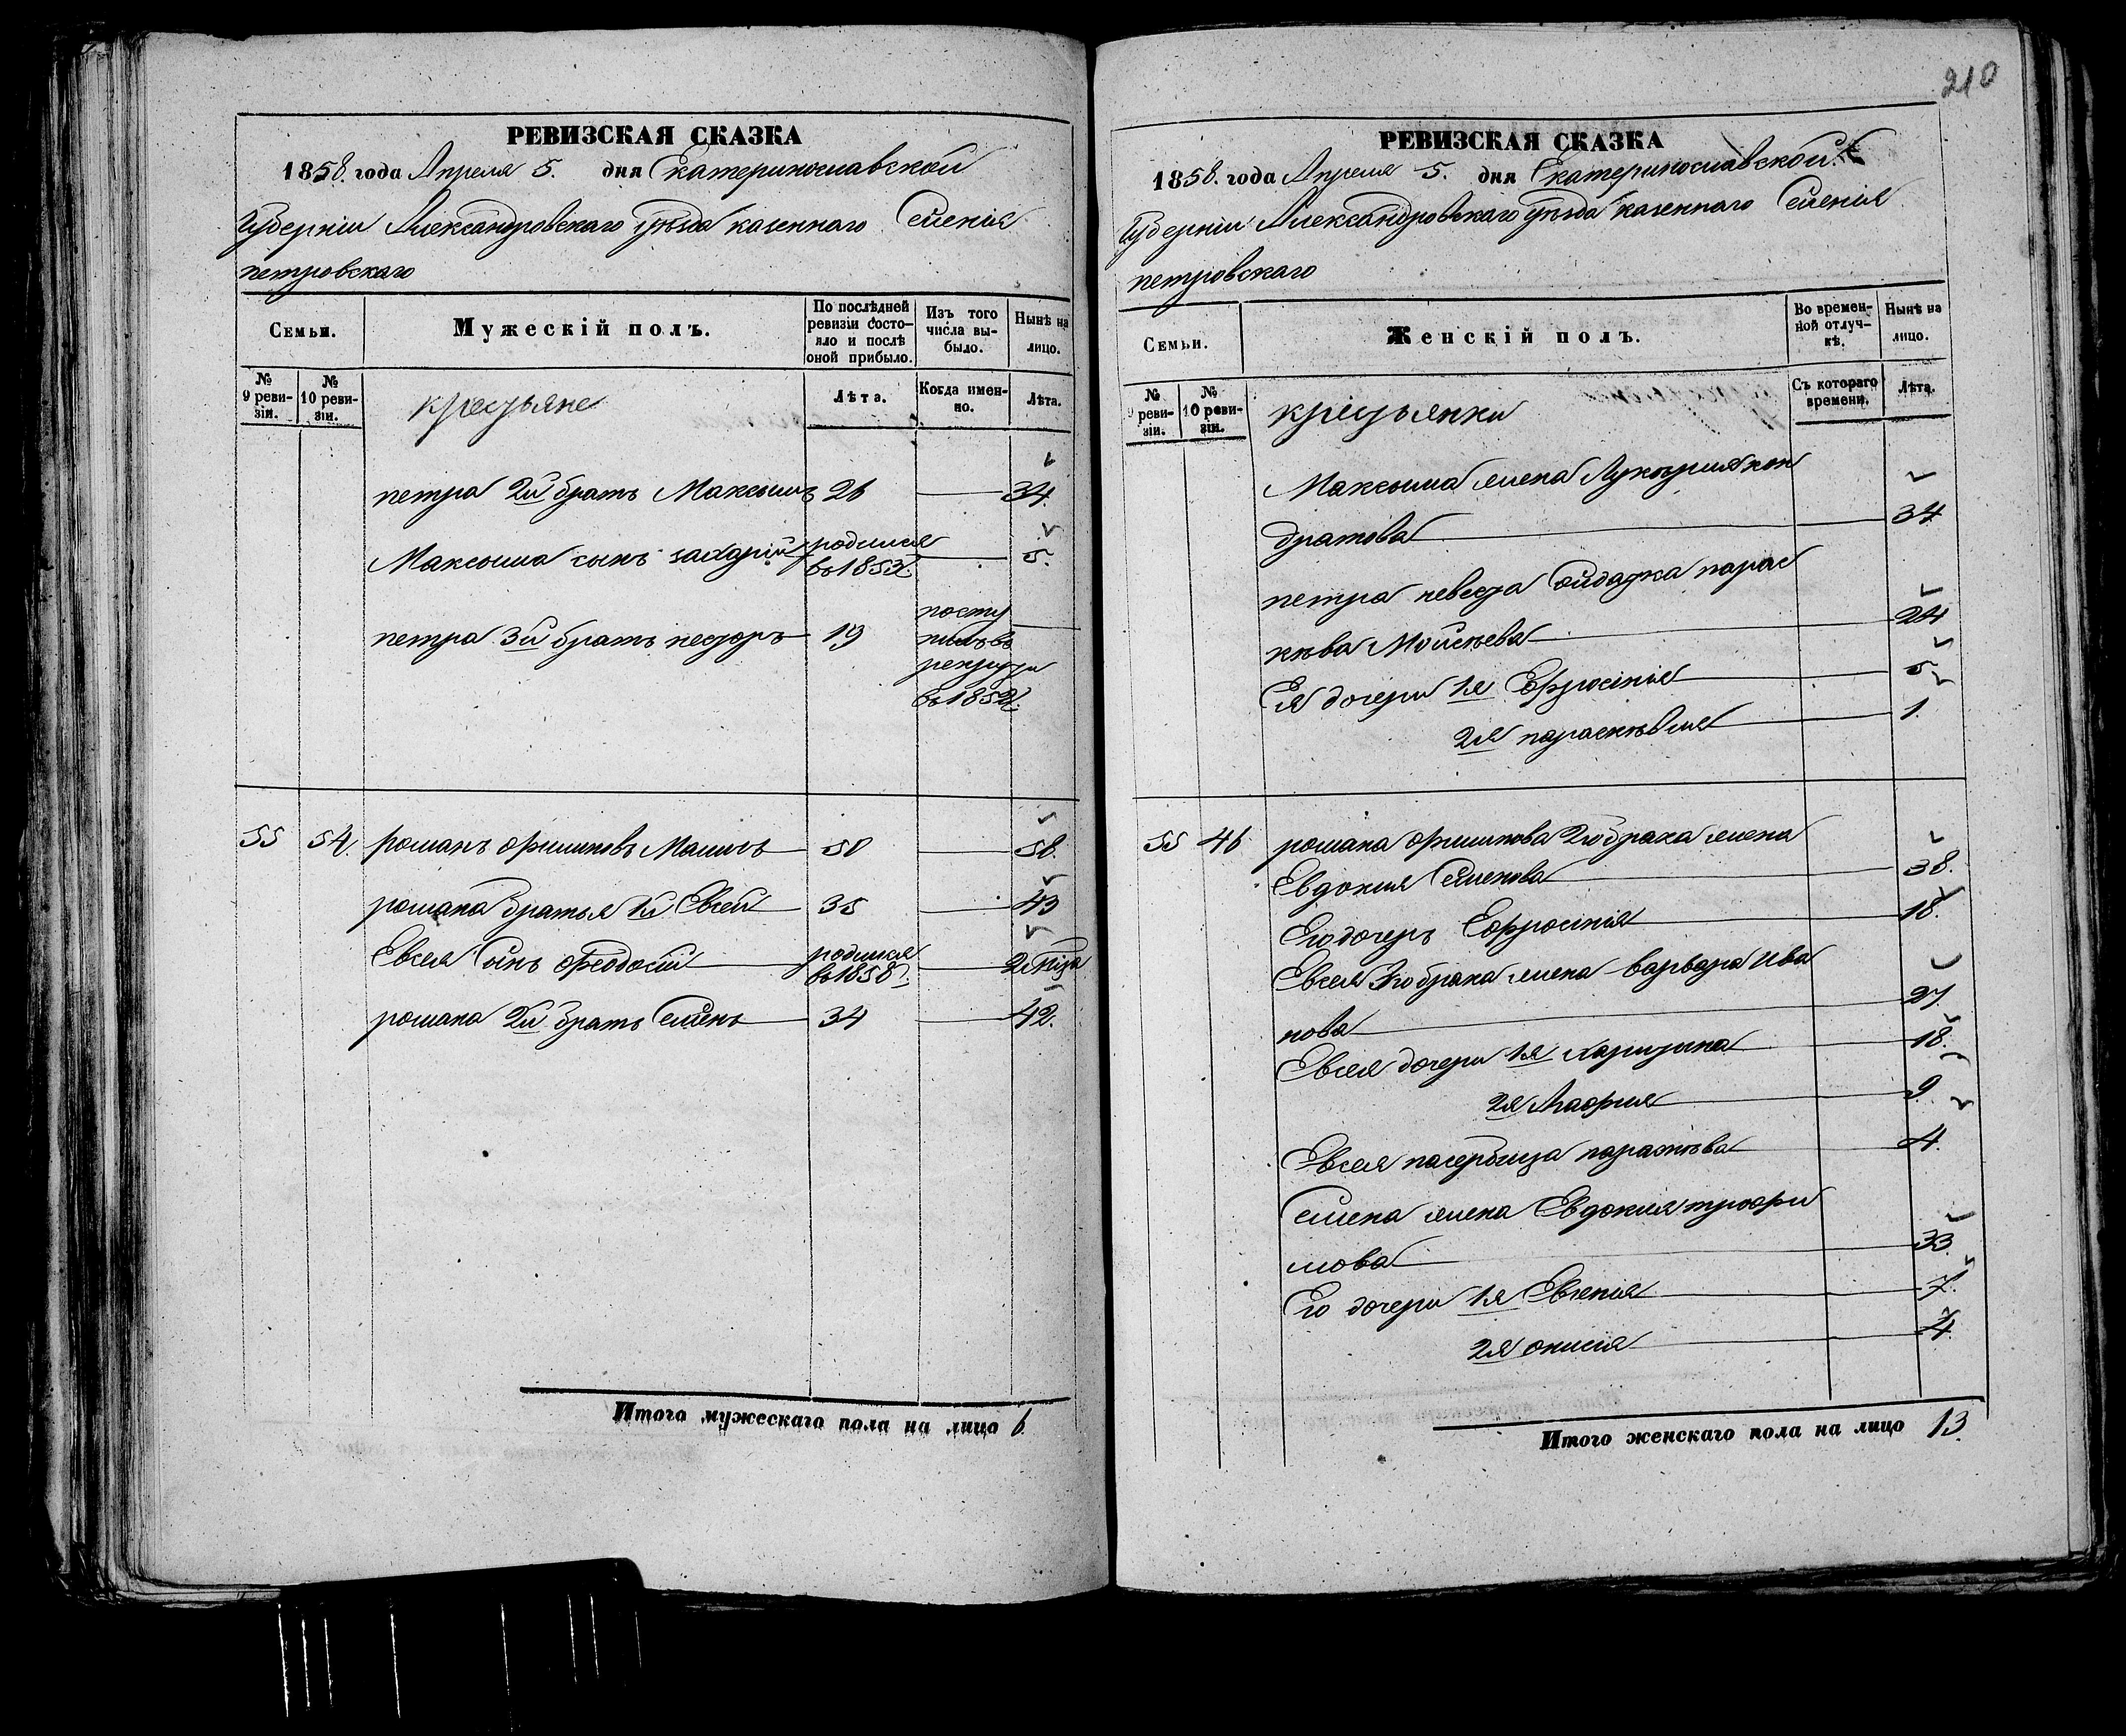 210
РЕВИЗСКАЯ СКАЗКА
1858. года Апреля 5. дня Екатеринославской
Губерніи Александровскаго уѣзда казеннаго Селенія
петровскаго
Семьи.
Мужескій полъ.
По послѣдней ревизіи состояло и послѣ оной прибыло.
Изъ того числа выбыло.
Нынѣ на лицо.
№ 9 ревизіи.
№ 10 ревизіи.
крестьяне
Лѣта.
Когда именно.
Лѣта.
петра 2й братъ Максимъ 26 34
Максима сынъ захарій родился въ 1853 5.
петра 3й братъ несторъ 19 поступилъ въ рекруты въ 1852
55 54. романъ Малишъ 50 58.
романа братья 1й Евсей 35 43
Евсея Сынъ Феодосій родился въ 1858
романа 2й братъ Семенъ 34 42.
Итого мужескаго пола на лицо 6
РЕВИЗСКАЯ СКАЗКА
1858. года Апреля 5. дня Екатеринославской
Губерніи Александровскаго уѣзда казеннаго Селенія
петровскаго
Семьи.
Женскій полъ.
Во временной отлучкѣ.
Нынѣ на лицо.
№ 9 ревизіи.
№ 10 ревизіи.
крестьянки
Съ котораго времени.
Лѣта.
Максима жена Лукерия кон
дратова 34
петра невестка Солдатка парас
кѣва Мойсѣева 24
Ея дочери 1я Ефросинія 5
2я параскѣвия 1.
55 46 романа 2го брака жена
Евдокия Семенова 38.
Его дочерь Ефросинія 18.
Евсея брака жена варвара ива
нова 27
Евсея дочери 1я харитина 18.
2я Мафрия 9
Евсея пасербица параскѣва 4.
Семена жена Евдокия трофи
мова 33
Его дочери 1я Евгенія 7.
2я онисія 4.
Итого женскаго пола на лицо 13.